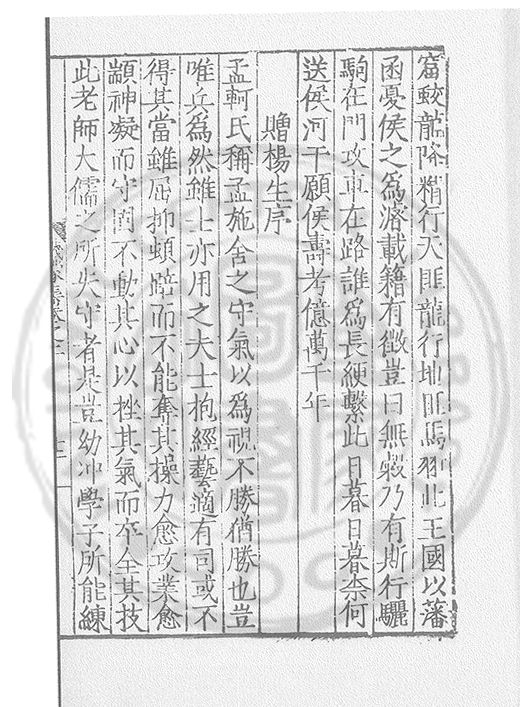 窟蛟龍降精行天匪龍行地匪馬猗此王國以藩
函憂侯之爲滂載籍有徵豈曰無叕乃有斯行驪
駒在門攻車在路誰爲長綆繫此日暮日暮柰何
送侯河干願侯壽考億萬千年
贈楊生序
孟軻氏稱孟施舍之守氣以爲視不勝猶勝也豈
唯兵爲然雖士亦用之夫士抱經藝適有司或不
得其當雖屈抑頓踣而不能奪其操力愈攻業愈
顓神凝而守固不動其心以挫其氣而卒全其技
此老師大儒之所失守者是豈幼冲學子所能練